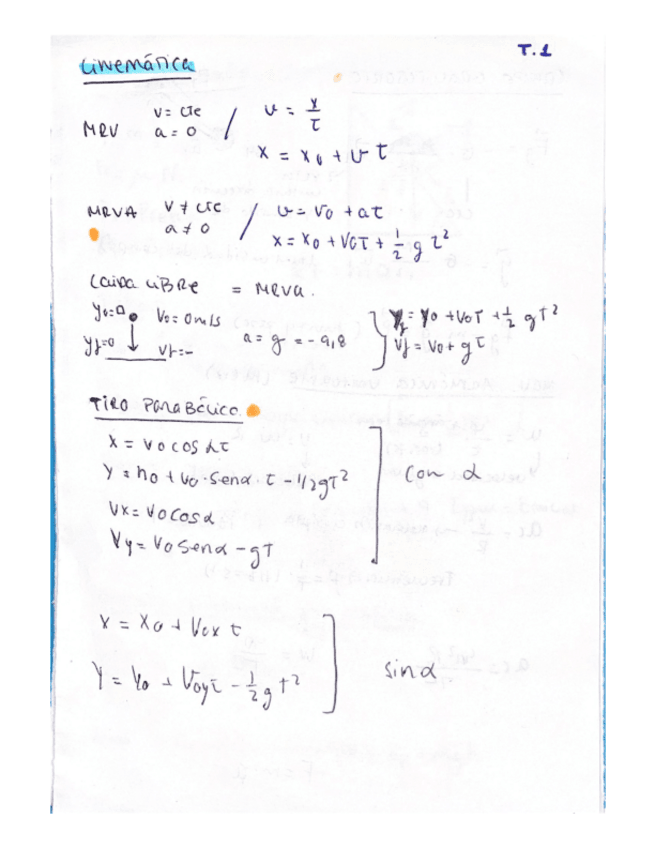 T.1
Cinemática
MRV v = cte a = 0 / v = x/t
x = x0 + v t
MRVA v ≠ cte a ≠ 0 / v = v0 + at
x = x0 + v0t + 1/2 g t²
Caida libre = MRVA.
y0=0 v0 = 0 m/s a = g = -9,8
yf=0 vf=-
y = y0 + v0t + 1/2 gt²
vf = v0 + gt
Tiro Parabólico.
x = v0 cos αt
y = h0 + v0 · senα t - 1/2gt²
vx = v0cosα
vy = v0 senα - gt
con α
x = x0 + v0x t
y = y0 + v0yt - 1/2 g t²
sin α